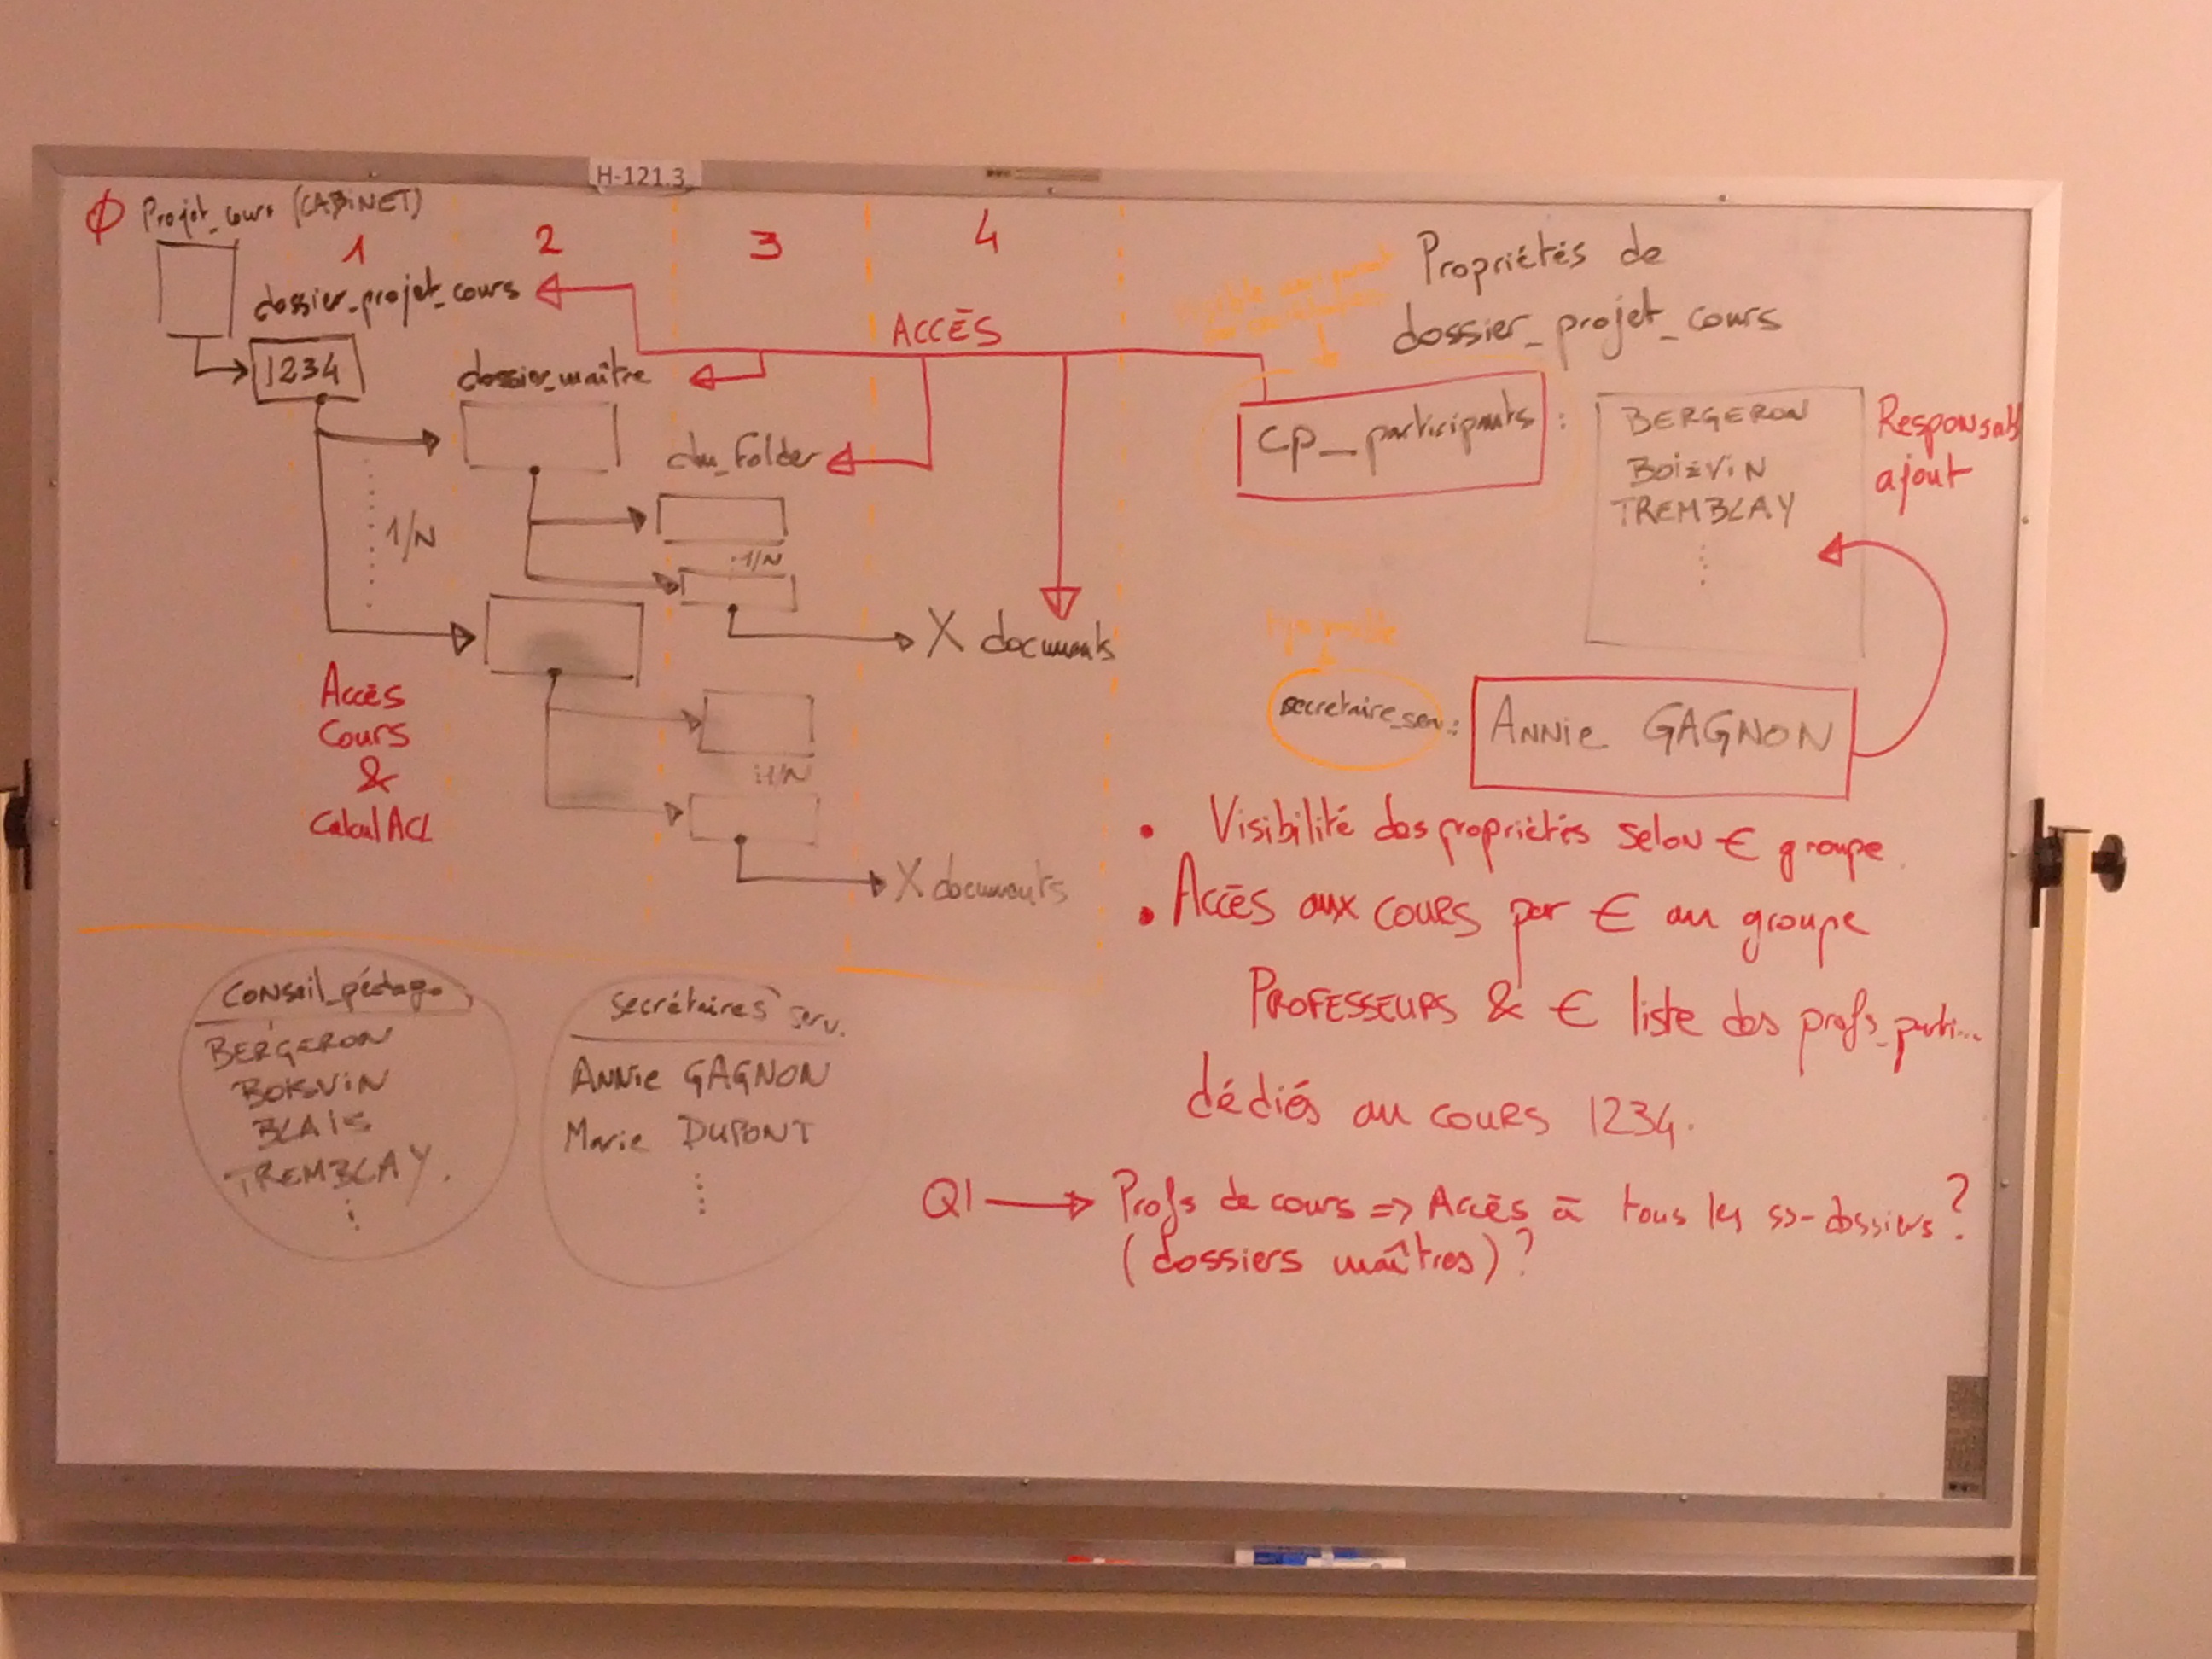 H-121.3
Ø Projet_cours (CABINET)
1 2 3 4
dossier_projet_cours
1234
ACCÈS
dossier_maître
dm_folder
1/N
1/N
X documents
Accès
Cours
&
Calcul ACL
1/N
X documents
Propriétés de
dossier_projet_cours
cp_participants :
BERGERON
BOISVIN
TREMBLAY
Responsab
ajout
secretaire_serv :
ANNIE GAGNON
• Visibilité des propriétés selon € groupe
• Accès aux cours par € au groupe
PROFESSEURS & € liste des profs_parti...
dédiés au cours 1234.
Q1 → Profs de cours => Accès à tous les ss-dossiers ?
(dossiers maîtres) ?
Conseil_pédago
BERGERON
BOISVIN
BLAIS
TREMBLAY.
secrétaires serv.
ANNIE GAGNON
Marie DUPONT